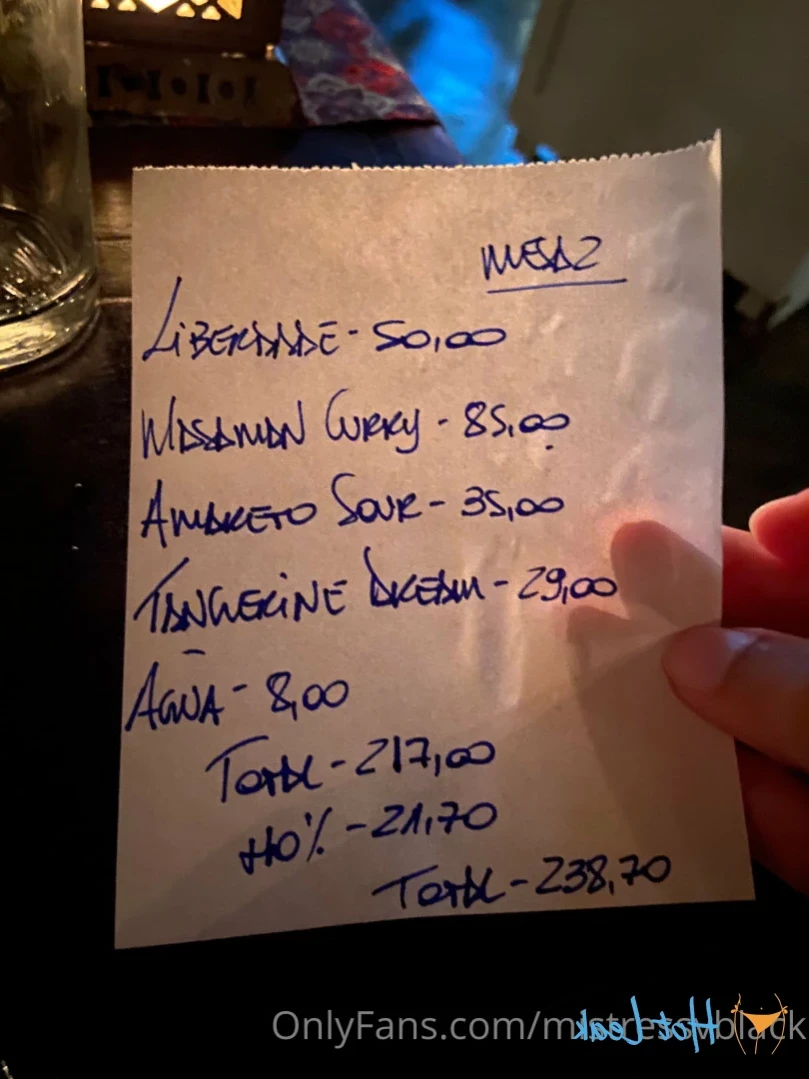 MESA 2
LIBERDADE - 50,00
MASSAMAN CURRY - 85,00
AMARETO SOUR - 35,00
TANGERINE DREAM - 29,00
ÁGUA - 8,00
TOTAL - 217,00
+10% - 21,70
TOTAL - 238,70
OnlyFans.com/mistressvblack
Hot Leak